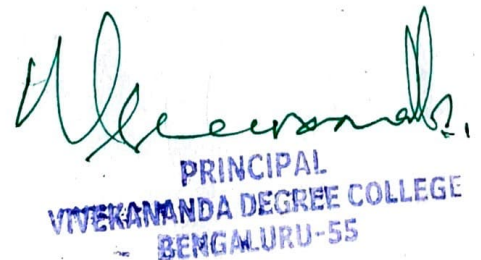 PRINCIPAL
VIVEKANANDA DEGREE COLLEGE
BENGALURU-55